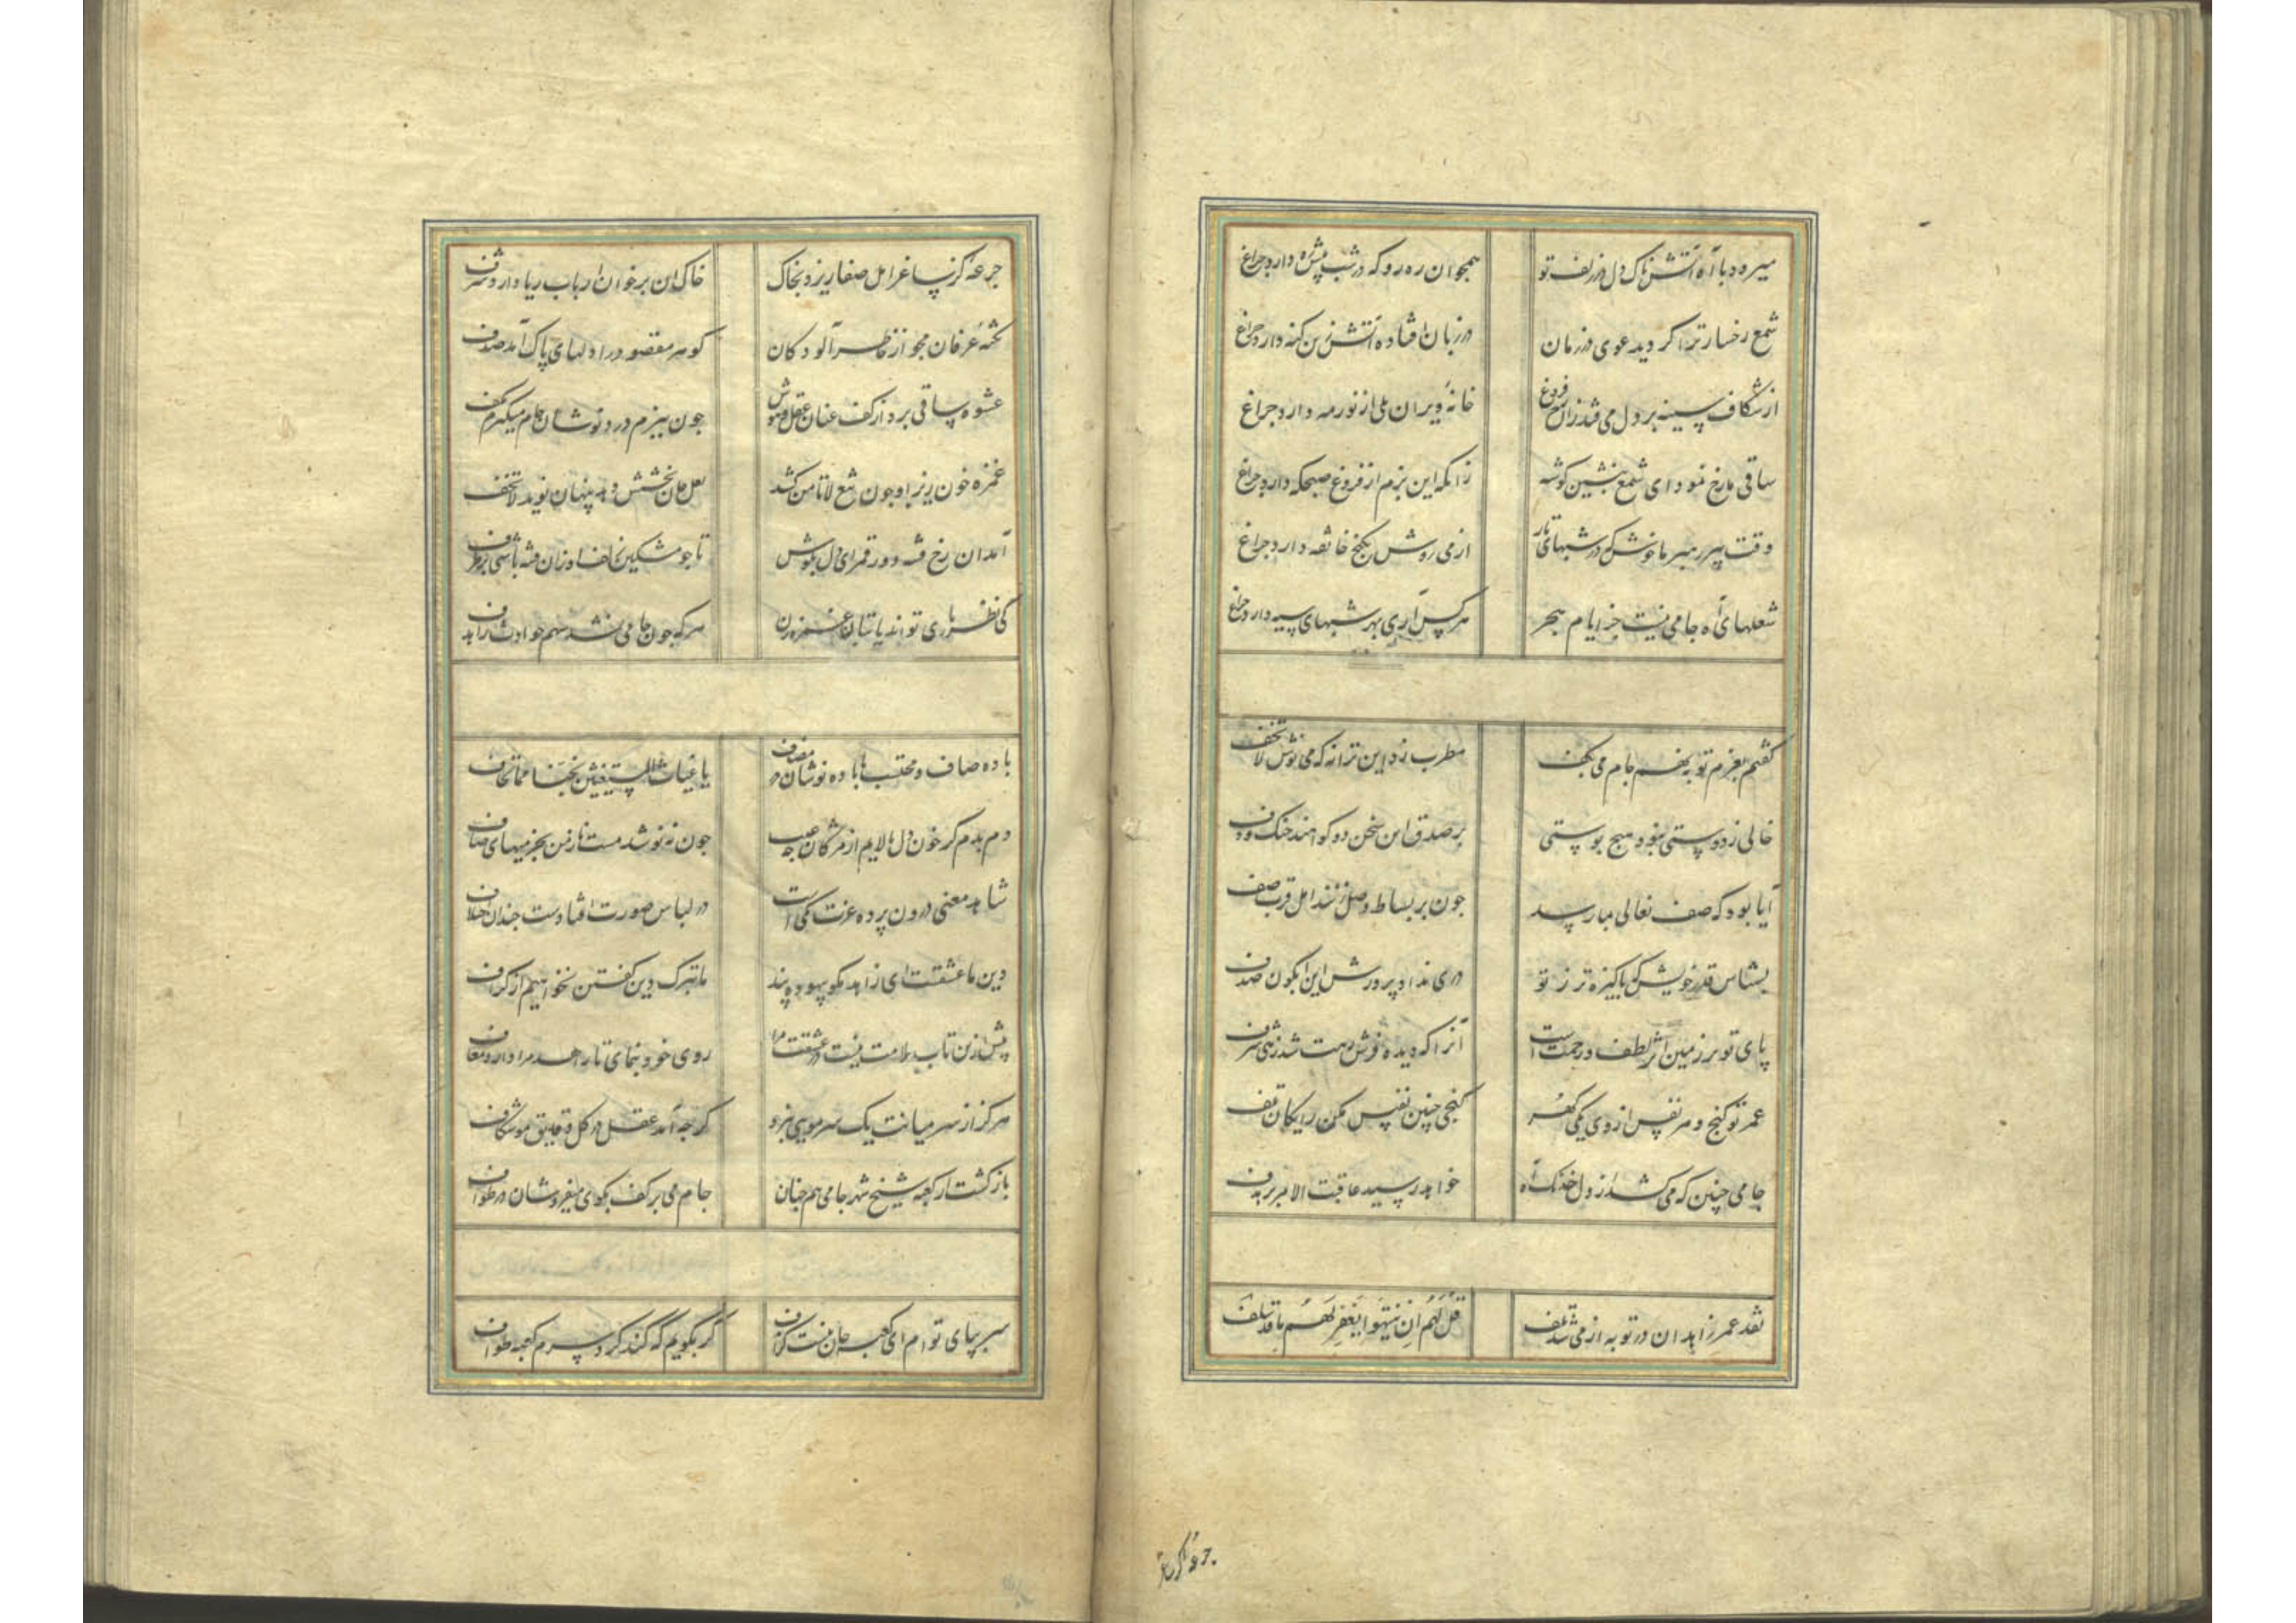 میرود با آه آتشناک دل در زلف تو همچو ان ره رو که در شب پیش ره دارد چراغ
شمع رخسار ترا کر دید دعوی در زمان در زبان افتاده آتش زین کنه دارد چراغ
از شکاف سینه بر دل می فتد زان رخ فروغ خانهٔ ویران ملی از نور مه دارد چراغ
ساقی ما رخ نمود ای شمع بنشین کوشه زانکه این بزم از فروغ صبحکه دارد چراغ
وقت پیر رهبر ما خوش که در شبهای تار از می روشن بکنج خانقه دارد چراغ
شعلهای آه جامی نیست جز ایام هجر هر کس آری بهر شبهای سیه دارد چراغ
کفتم بعزم توبه نهم جام می بکف مطرب زد این ترانه که می نوش لا تخف
خالی ز دوستی نبود هیچ پوستی بر صدق این سخن دو کواهند چنک و دف
آیا بود که صف نعالی بما رسد چون بر بساط وصل زنند اهل قرب صف
بشناس قدر خویش که پاکیزه تر ز تو دری نداد پرورش این آبکون صدف
پای تو بر زمین اثر لطف و رحمت است آنرا که دیده فرش رهت شد زهی شرف
عمر تو کنج و هر نفس از وی یکی کهر کنجی چنین نفیس مکن رایکان تلف
جامی چنین که می کشد از دل خدنک آه خواهد رسید عاقبت الامر بر هدف
نقد عمر زاهدان در توبه از می شد تلف قل لهم ان ینتهوا یغفر لهم ما قد سلف
جرعهٔ کز
جرعه کز ساغر اهل صفا ریزد بخاک خاک ان بر خوان ارباب ریا دارد شرف
نکتهٔ عرفان مجو از خاطر آلودکان کوهر مقصود را دلهای پاک آمد صدف
عشوه ساقی برد از کف عنان عقل و هوش چون ببزم درد نوشان جام میکیرم بکف
غمزه خون ریز او چون تیغ لا تامن کشد لعل جان بخشش دهد پنهان نوید لا تخف
آمد ان رخ فتنه دور قمر ای دل بکوش تا چو مشکین خال او زان فتنه باشی بر طرف
کی نظر بازی تواند با بتان غمزه زن هر که چون جامی نشد سهم حوادث را هدف
باده صاف و محتسب با باده نوشان در مصاف یا غیاث المستغیثین نجنا مما نخاف
دم بدم کر خون دل پالایم از مژکان چه عیب چون ننوشد مست ناز من بجز میهای صاف
شاهد معنی درون پرده عزت یکی است در لباس صورت افتادست چندان اختلاف
دین ما عشقست ای زاهد مکو بیهوده پند ما بترک دین کفتن نخواهیم از کزاف
پیش ازین تاب ملامت نیست در عشقت مرا روی خود بنمای تا زاهد مرا دارد معاف
هرکز از سر میانت یک سر مویی نبرد کرچه آمد عقل در کل دقایق موشکاف
باز کشت از کعبه شیخ شهر جامی هم چنان جام می بر کف بکوی میفروشان در طواف
سر بپای توام ای کعبه جان نیست کزاف کر بکویم که کند کرد سرم کعبه طواف